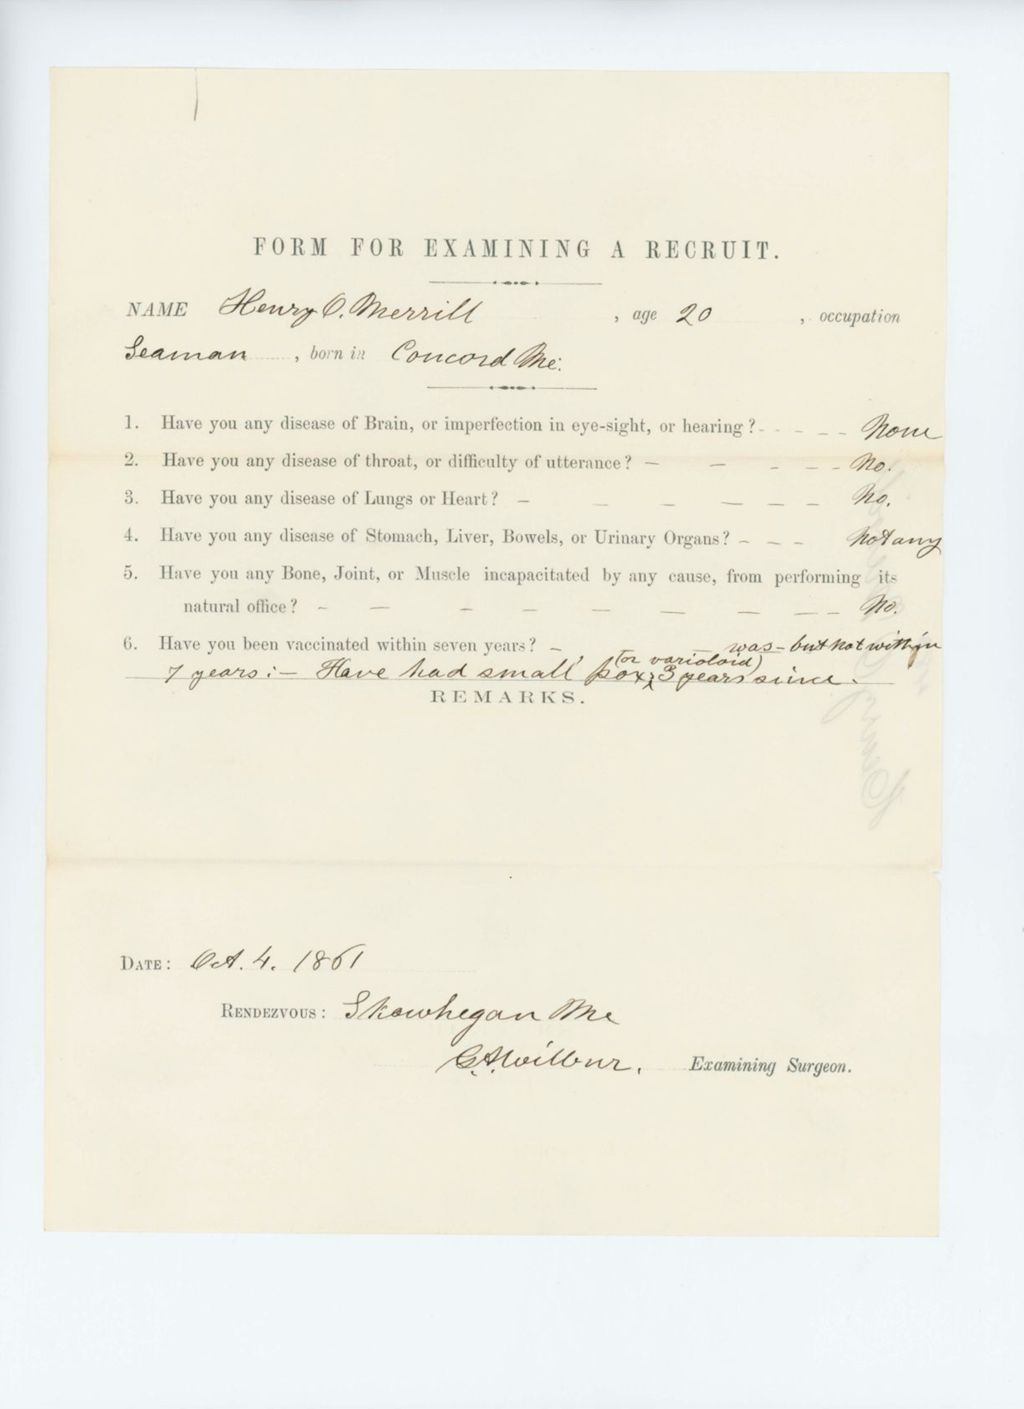 FORM FOR EXAMINING A RECRUIT.
NAME Henry O. Merrill , age 20 , occupation
Seaman , born in Concord Me.
1. Have you any disease of Brain, or imperfection in eye-sight, or hearing? - - - - - None
2. Have you any disease of throat, or difficulty of utterance? — — - - - No.
3. Have you any disease of Lungs or Heart? — — — — — — No.
4. Have you any disease of Stomach, Liver, Bowels, or Urinary Organs? - - - - Not any
5. Have you any Bone, Joint, or Muscle incapacitated by any cause, from performing its
natural office? - — - - — — — — — No.
6. Have you been vaccinated within seven years? — was - but not within
7 years :— Have had small pox (or varioloid) 3 years since.
REMARKS.
DATE: Oct. 4. 1861
RENDEZVOUS: Skowhegan Me
Wilbur, Examining Surgeon.